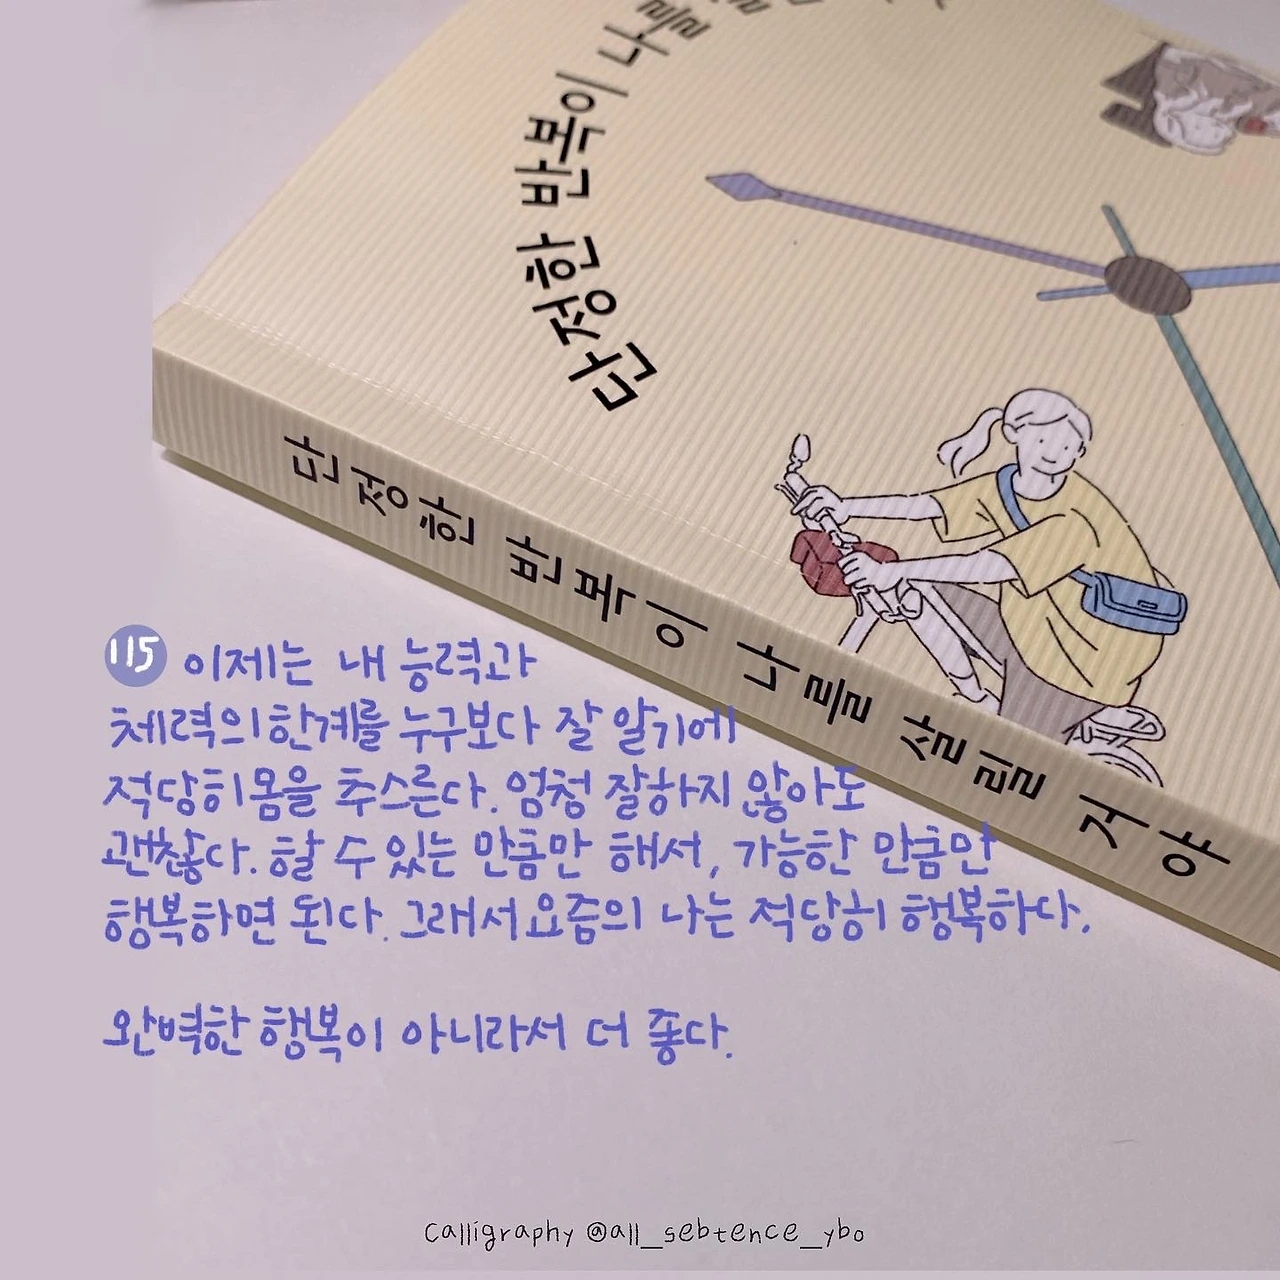 단정한 반복이 나를
단정한 반복이 나를 살릴 거야
115 이제는 내 능력과
체력의 한계를 누구보다 잘 알기에
적당히 몸을 추스른다. 엄청 잘하지 않아도
괜찮다. 할 수 있는 만큼만 해서, 가능한 만큼만
행복하면 된다. 그래서 요즘의 나는 적당히 행복하다.
완벽한 행복이 아니라서 더 좋다.
Calligraphy @all_sebtence_ybo